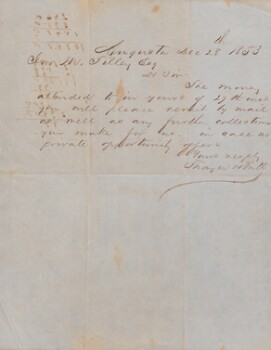 Augusta Dec 28th 1853
Jno W. Tilley Esq
Dr Sir
The money
attended to in yours of 27th inst
you will please remit by mail
as well as any further collections
you make for me. in case no
private opportunity offers
Yours respy